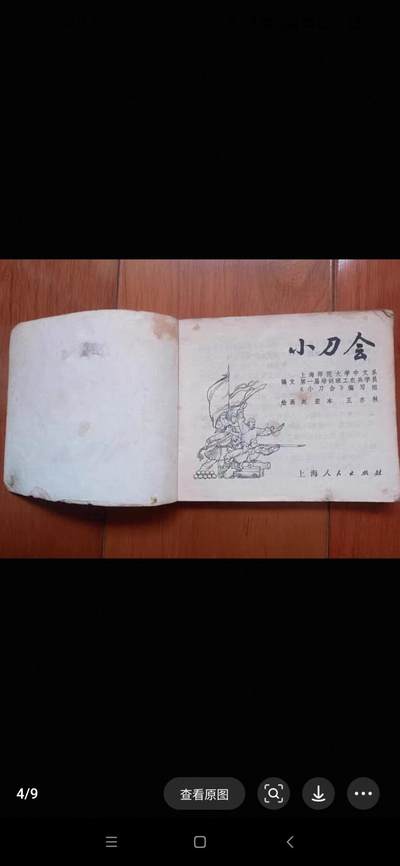 小刀会
上海师范大学中文系
编文 第一届培训班工农兵学员
《小刀会》编写组
绘画 宏本 王亦秋
上海人民出版社
4/9
查看原图